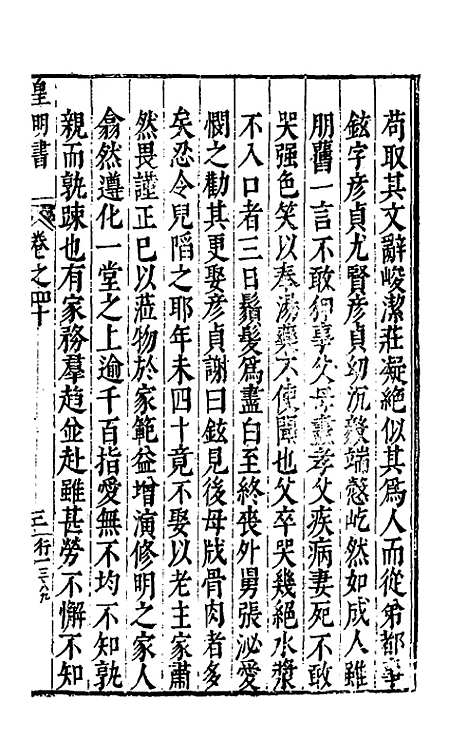 苟取其文辭峻潔莊凝絕似其為人而從弟都事
鉉字彥貞尤賢彥貞幼沉毅端愨屹然如成人雖
朋舊一言不敢狎事父母盡孝父疾病妻死不敢
哭强色笑以奉湯藥不使聞也父卒哭幾絕水漿
不入口者三日鬚髮為盡白至終喪外舅張泌愛
憫之勸其更娶彥貞謝曰鉉見後母戕骨肉者多
矣忍令兒陷之耶年未四十竟不娶以老主家肅
然畏謹正已以蒞物於家範益增演修明之家人
翕然遵化一堂之上逾千百指愛無不均不知孰
親而孰踈也有家務羣趋並赴雖甚勞不懈不知
皇明書 卷之四十 三 行一三八九